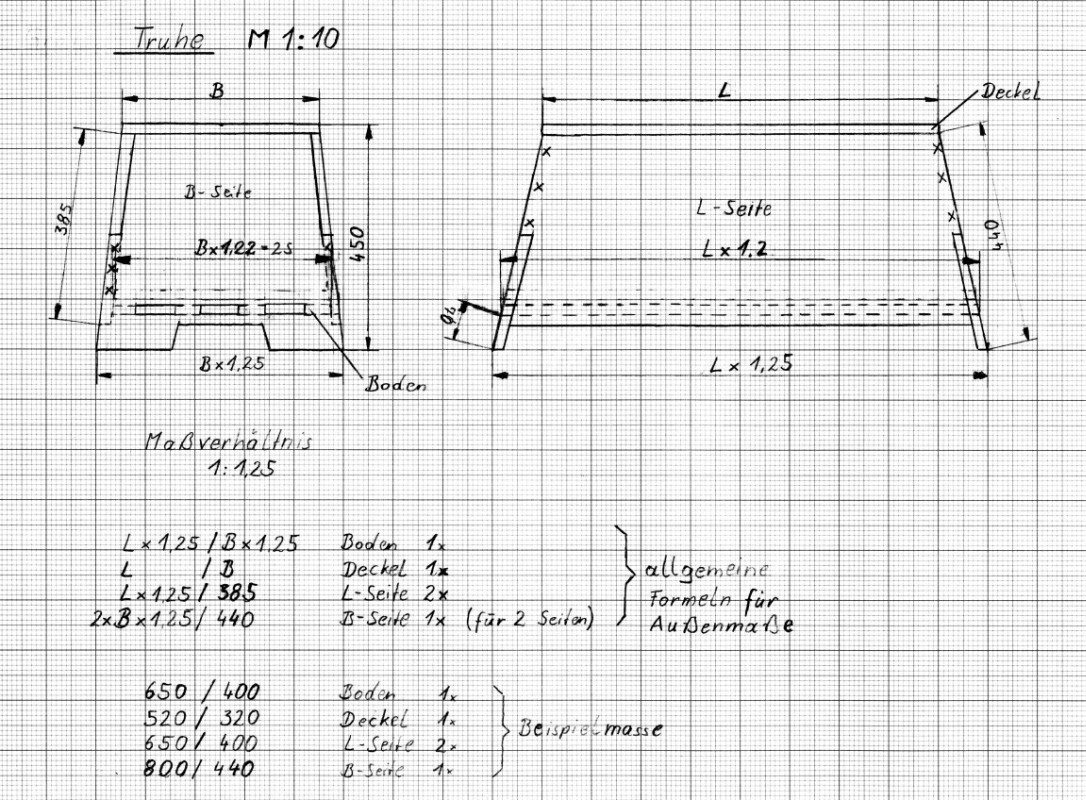 Truhe M 1:10
B
L
Deckel
385
B-Seite
450
B×1,22-25
L-Seite
L×1.2
440
B×1,25
Boden
L×1,25
Maßverhältnis
1:1,25
L×1,25 / B×1.25 Boden 1×
L / B Deckel 1×
L×1,25 / 385 L-Seite 2×
2×B×1,25 / 440 B-Seite 1× (für 2 Seiten)
allgemeine
Formeln für
Außenmaße
650 / 400 Boden 1×
520 / 320 Deckel 1×
650 / 400 L-Seite 2×
800 / 440 B-Seite 1×
Beispielmasse